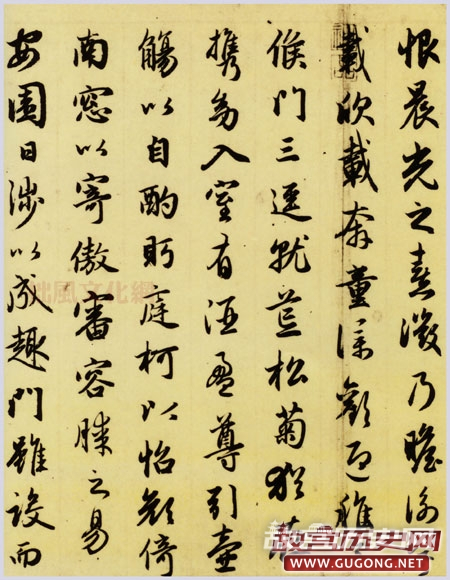 恨晨光之熹微乃瞻衡
載欣載奔童僕歡迎稚
候門三逕就荒松菊猶存
攜幼入室有酒盈尊引壺
觴以自酌眄庭柯以怡顏倚
南窓以寄傲審容膝之易
安園日涉以成趣門雖設而
風文化網
故宫历史网
www.GUGONG.NET